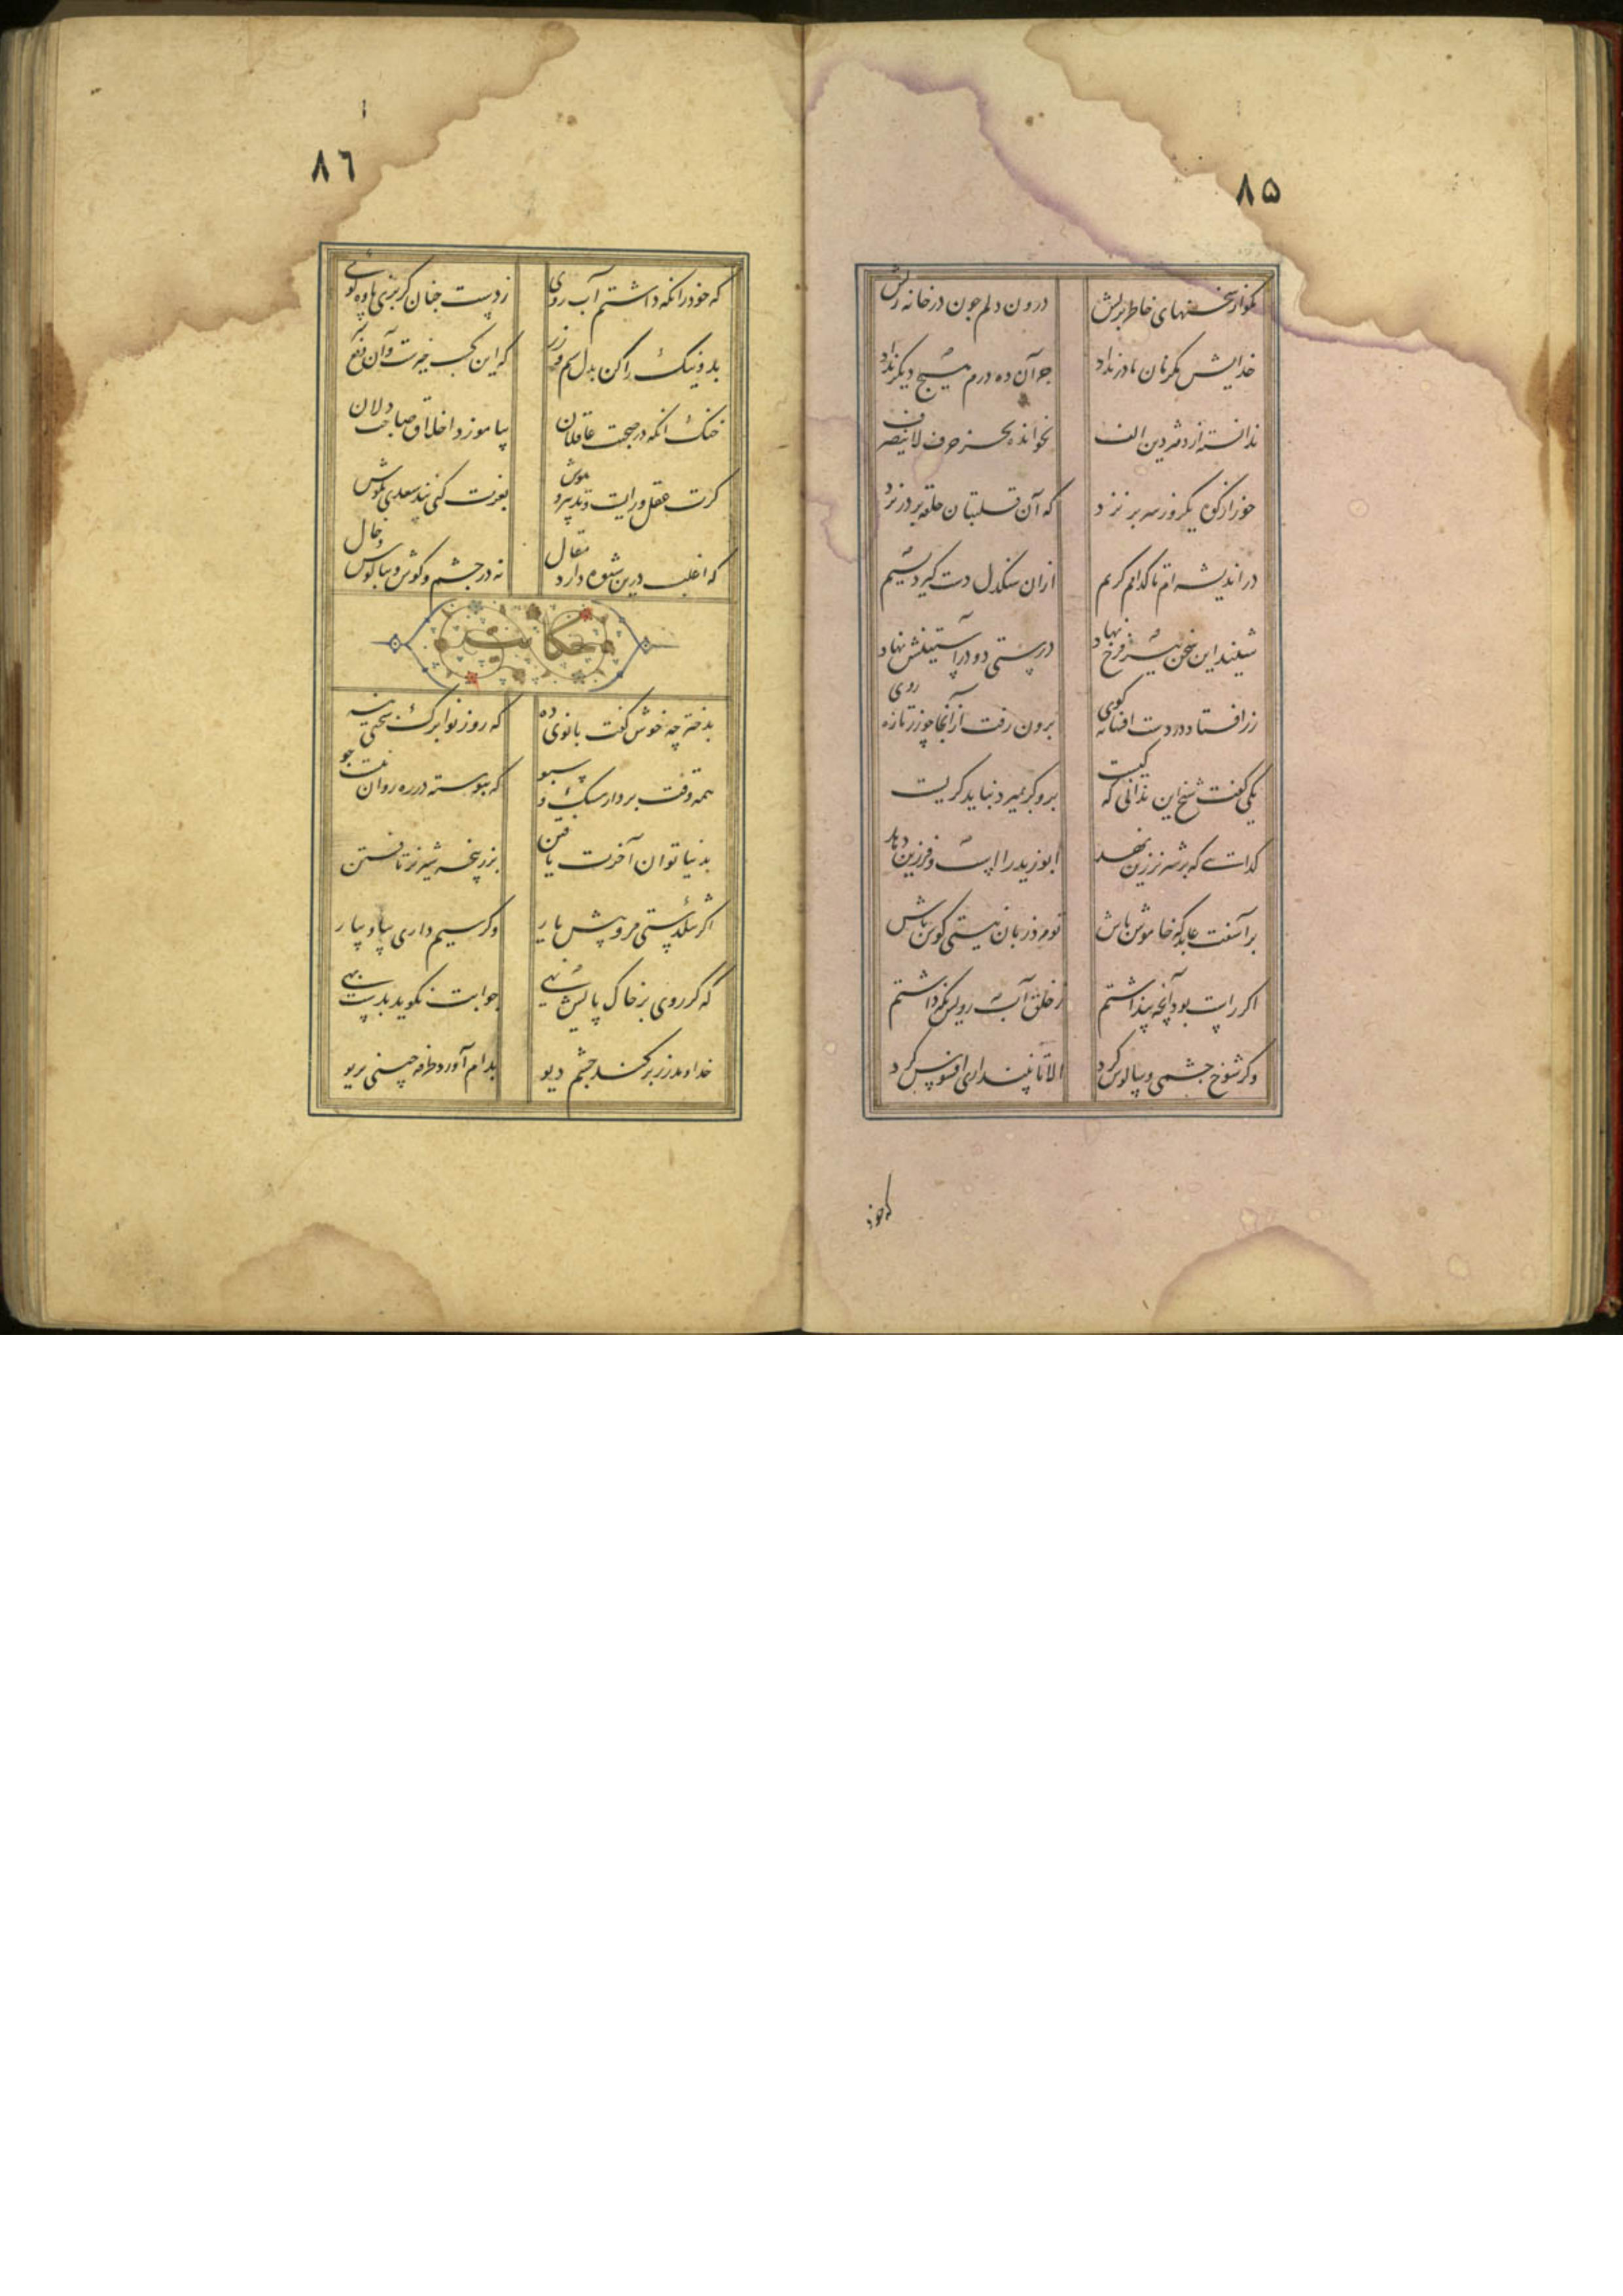 ۸۵
بکرد از سخنهای خاطر پریش
درون دلم چون در خانه ریش
خدایش مگر تا ز مادر نزاد
جز آن ده درم هیچ دیگر نداد
ندانسته از دفتر دین الف
نخوانده بجز حرف لاینصرف
خور از کوه یکروز سر بر نزد
که آن قلتبان حلقه بر در نزد
در اندیشه ام تا کدامم کریم
ازان سنکدل دست کیرد بسیم
شنید این سخن پیر فرخ نهاد
درستی دو در آستینش نهاد
زر افتاد در دست افسانه کوی
برون رفت از آنجا چو زر تازه روی
یکی کفت شیخ این ندانی که کیست
برو کر بمیرد نباید کریست
کدائی که بر شیر نر زین نهد
ابوزید را اسب و فرزین دهد
بر آشفت عابد که خاموش باش
تو مرد زبان نیستی کوش باش
اکر راست بود آنچه پنداشتم
ز خلق آب رویش نکه داشتم
وکر شوخ چشمی و سالوس کرد
الا تا نپنداری افسوس کرد
که خود
۸٦
که خود را نکه داشتم آب روی
ز دست چنان کربزی یاوه کوی
بد و نیک را کن بدل سیم و زر
که این کسب خیرست و آن دفع
خنک آنکه در صحبت عاقلان
بیاموزد اخلاق صاحب دلان
کرت عقل و رایست و تدبیر و هوش
بعزت کنی پند سعدی بکوش
که اغلب درین شیوه دارد مقال
نه در چشم و کوش و بناکوش و خال
حکایت
بدختر چه خوش کفت بانوی ده
که روز نوا برک سختی بنه
همه وقت بردار مشک و سبو
که پیوسته در ره روان نیست جو
بدنیا توان آخرت یافتن
بزر پنجه شیر نر تافتن
اکر تنکدستی مرو پیش یار
وکر سیم داری بیا و بیار
که کر روی بر خاک پایش نهی
جوابت نکوید بدست تهی
خداوند زر بر کند چشم دیو
بدام آورد صخر جنی بریو